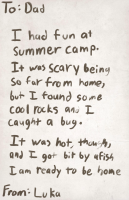 To: Dad
I had fun at
summer camp.
It was scary being
so far from home,
but I found some
cool rocks and I
caught a bug.
It was hot, though,
and I got bit by a fish
I am ready to be home
From: Luka